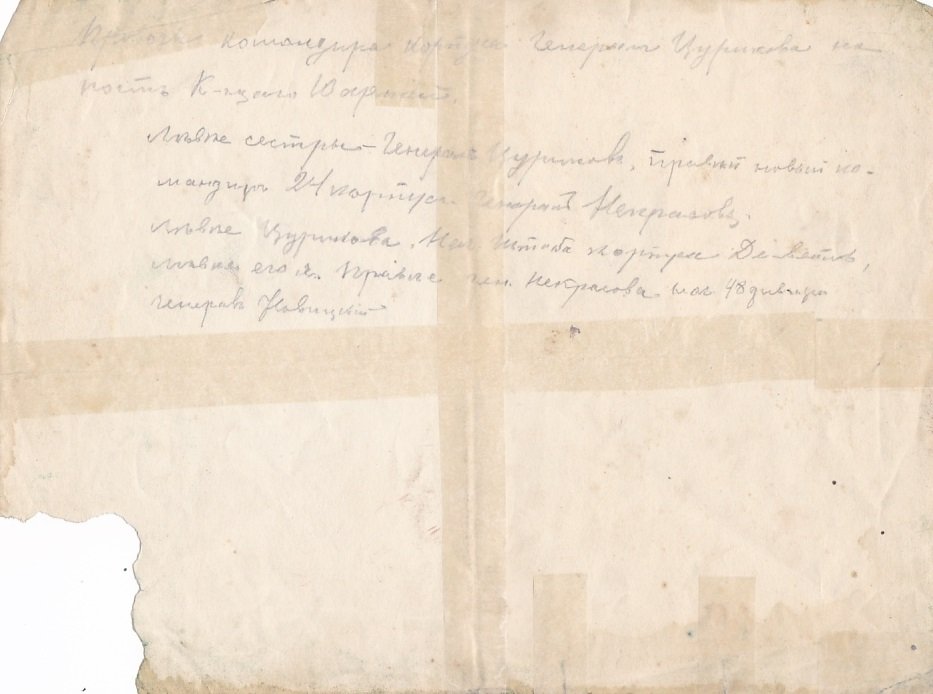 Проводы командира корпуса Генерала Цурикова на
ность
лѣвѣе сестры – Генералъ Цуриковъ, правѣй новый ко-
мандиръ 24 корпуса Генералъ Некрасовъ.
лѣвѣе Цурикова, Нач. Штаба корпуса
лѣвѣе его я. Правѣе ген. Некрасова нач 48 дивизіи
генералъ Новицкій